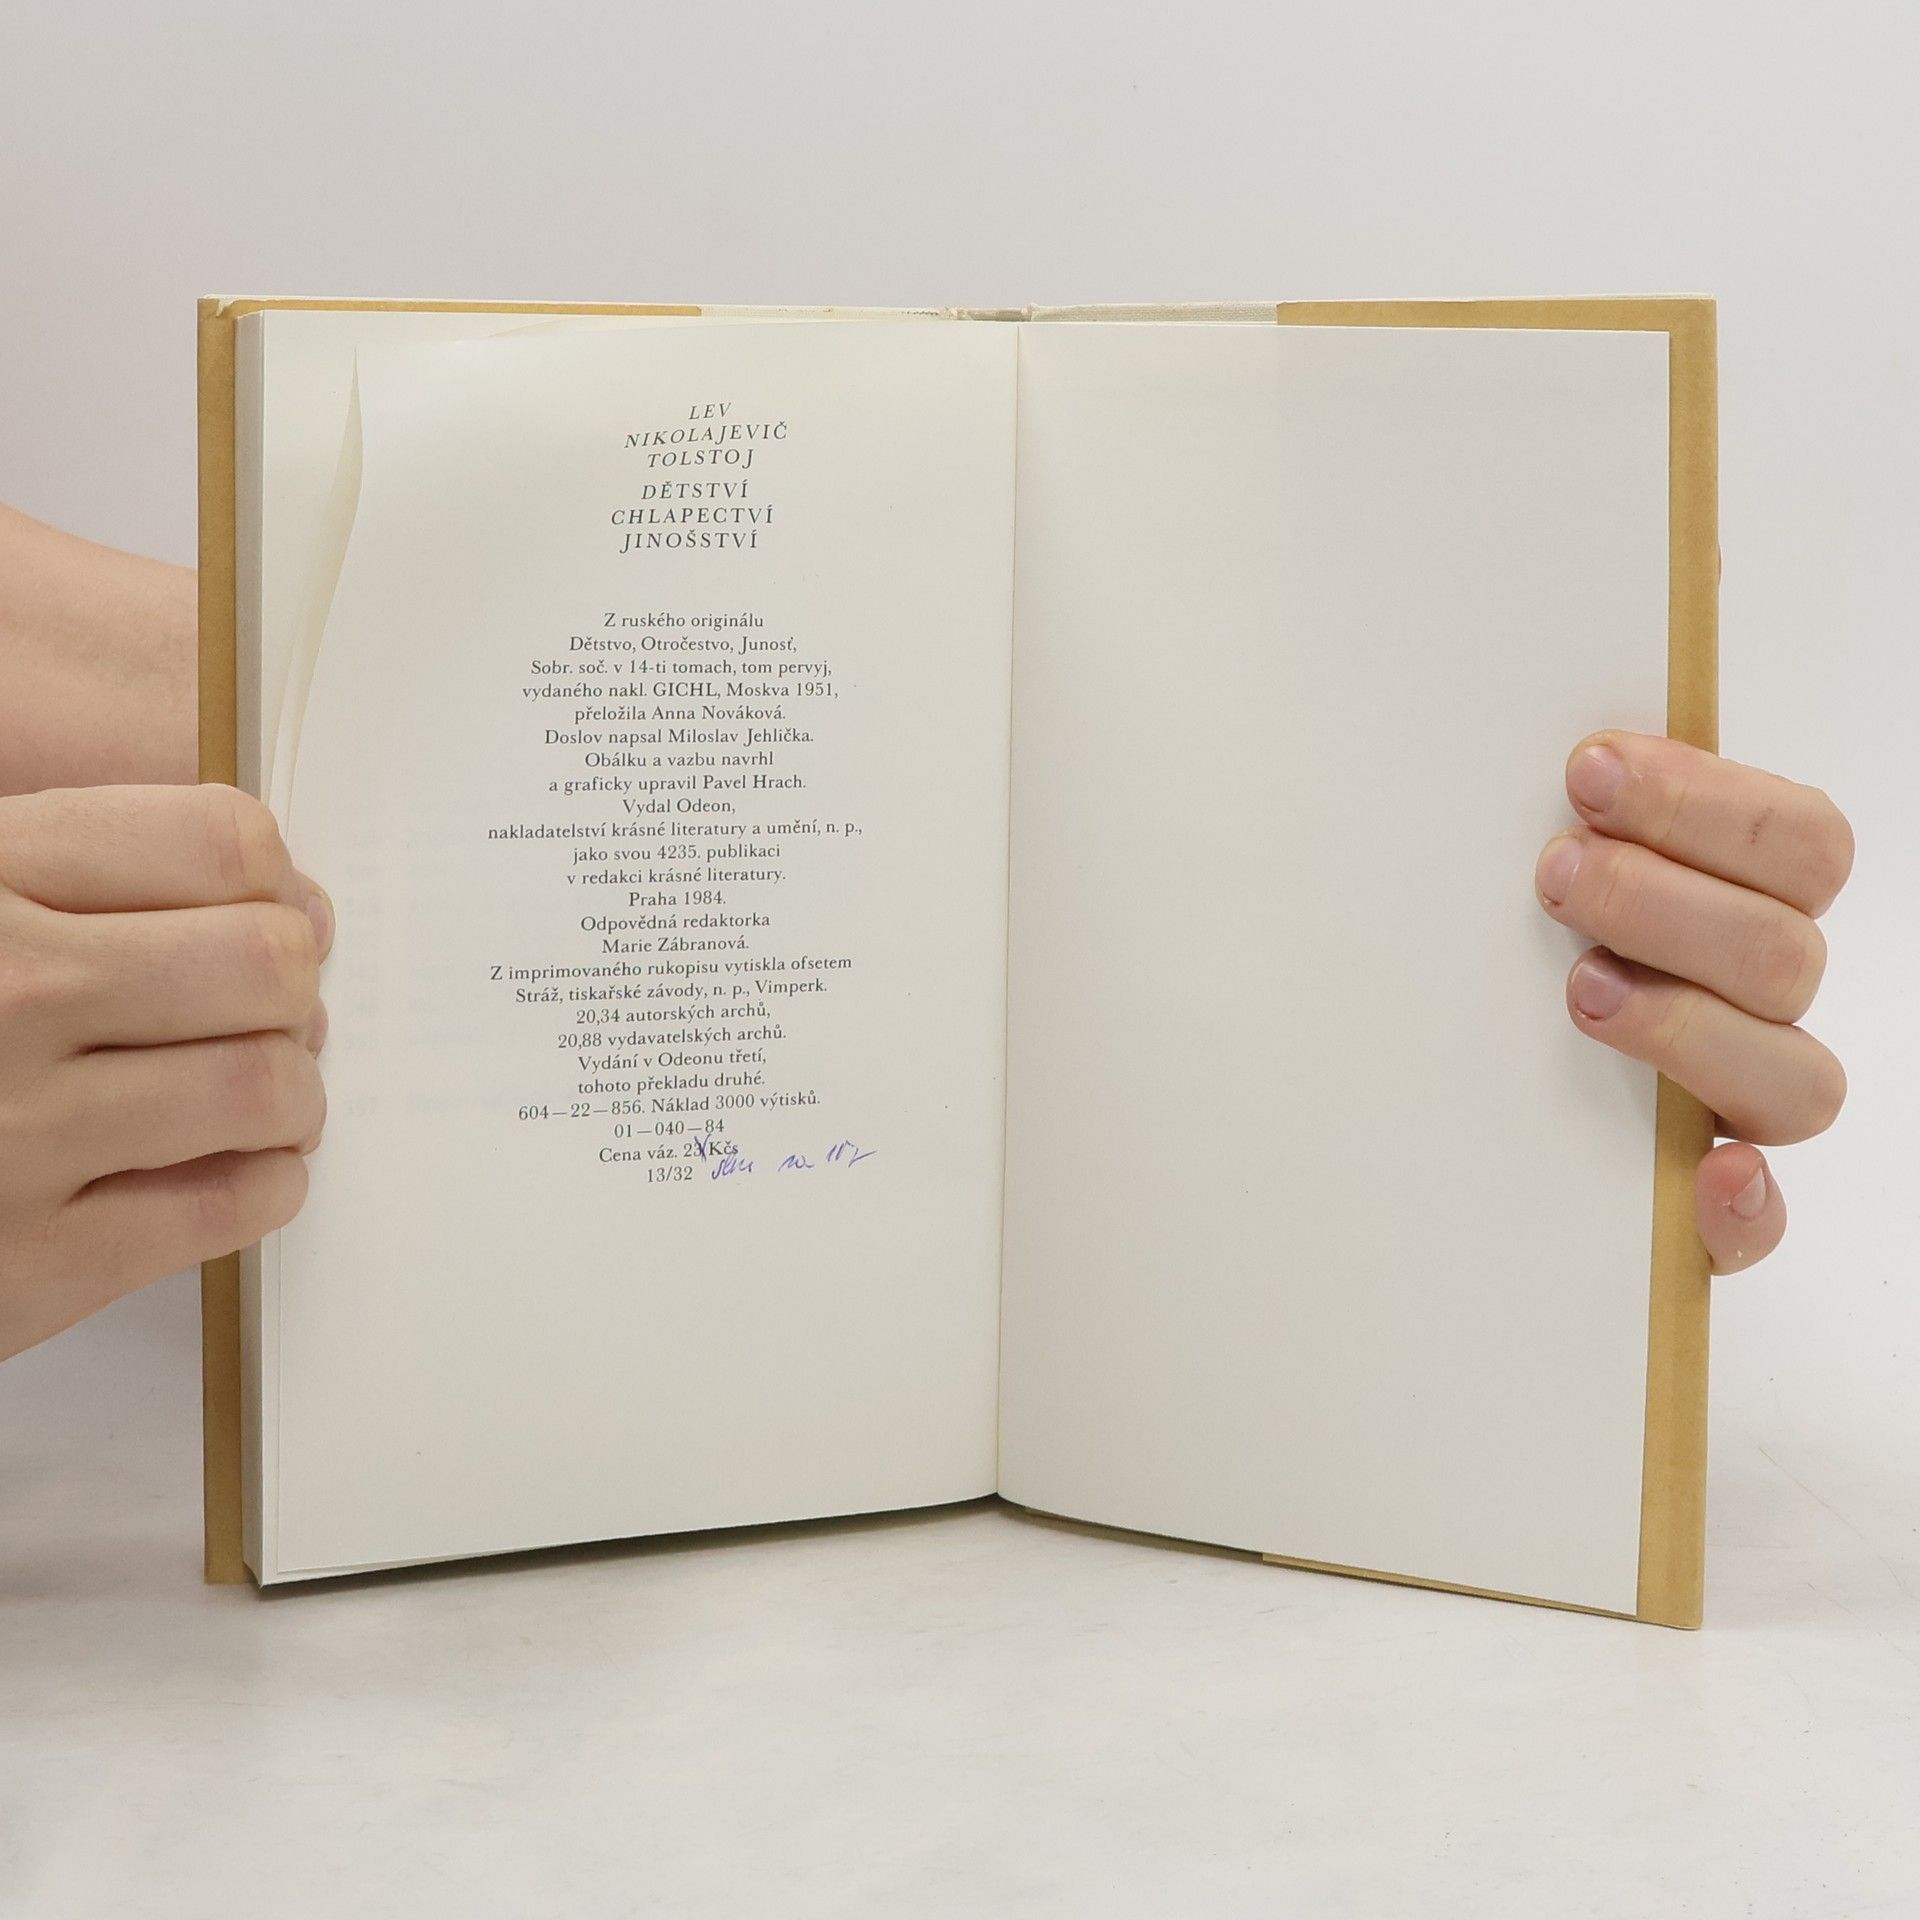 LEV
NIKOLAJEVIČ
TOLSTOJ
DĚTSTVÍ
CHLAPECTVÍ
JINOŠSTVÍ
Z ruského originálu
Dětstvo, Otročestvo, Junosť,
Sobr. soč. v 14-ti tomach, tom pervyj,
vydaného nakl. GICHL, Moskva 1951,
přeložila Anna Nováková.
Doslov napsal Miloslav Jehlička.
Obálku a vazbu navrhl
a graficky upravil Pavel Hrach.
Vydal Odeon,
nakladatelství krásné literatury a umění, n. p.,
jako svou 4235. publikaci
v redakci krásné literatury.
Praha 1984.
Odpovědná redaktorka
Marie Zábranová.
Z imprimovaného rukopisu vytiskla ofsetem
Stráž, tiskařské závody, n. p., Vimperk.
20,34 autorských archů,
20,88 vydavatelských archů.
Vydání v Odeonu třetí,
tohoto překladu druhé.
604—22—856. Náklad 3000 výtisků.
01—040—84
Cena váz. Kčs
13/32